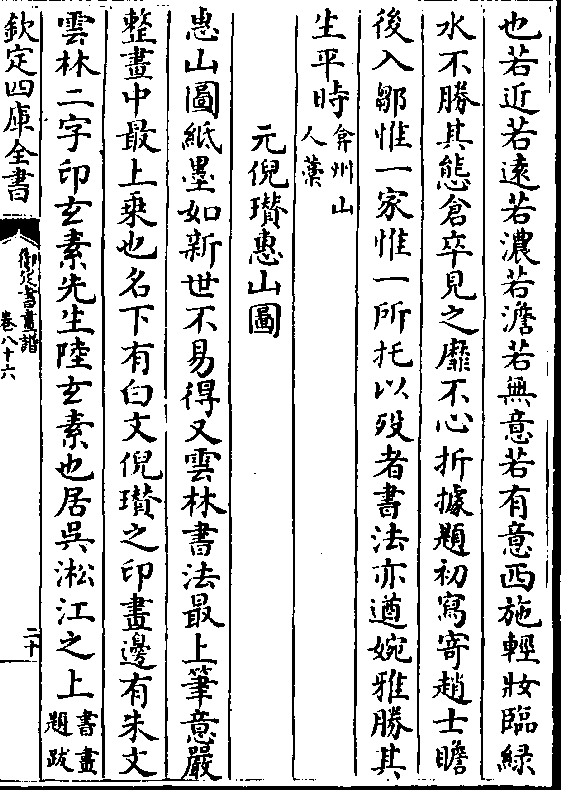 也若近若遠若濃若澹若無意若有意西施輕妝臨緑
水不勝其態倉卒見之靡不心折據題初寫寄趙士瞻
後入鄒惟一家惟一所托以殁者書法亦遒婉雅勝其
生平時弇州山人藁
元倪瓚惠山圖
惠山圖紙墨如新世不易得又雲林書法最上筆意嚴
整畫中最上乗也名下有白文倪瓚之印畫邊有朱文
雲林二字印玄素先生陸玄素也居吳淞江之上書畫題跋
欽定四庫全書
御定書畫譜
卷八十六
二十